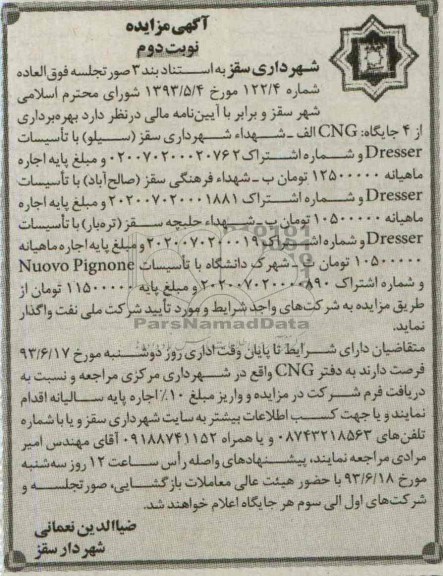 آگهی مزایده
نوبت دوم
شهرداری سقز به استناد بند ۳ صورتجلسه فوق‌العاده
شماره ۱۲۲/۴ مورخ ۱۳۹۳/۵/۴ شورای محترم اسلامی
شهر سقز و برابر با آیین‌نامه مالی درنظر دارد بهره‌برداری
از ۴ جایگاه: CNG الف ـ شهداء شهرداری سقز (سیلو) با تأسیسات
Dresser و شماره اشتراک ۰۲۰۰۷۰۲۰۰۰۲۰۷۶۲ و مبلغ پایه اجاره
ماهیانه ۱۲۵۰۰۰۰۰ تومان ب ـ شهداء فرهنگی سقز (صالح‌آباد) با تأسیسات
Dresser و شماره اشتراک ۲۰۲۰۰۷۰۲۰۰۰۱۸۸۱ و مبلغ پایه اجاره
ماهیانه ۱۰۵۰۰۰۰۰ تومان ب ـ شهداء حلیچه سقز (تره‌بار) با تأسیسات
Dresser و شماره اشتراک ۲۰۲۰۰۷۰۲۰۰۰۱۹ و مبلغ پایه اجاره ماهیانه
۱۰۵۰۰۰۰۰ تومان ج ـ شهرک دانشگاه با تأسیسات Nuovo Pignone
و شماره اشتراک ۲۰۲۰۰۷۰۲۰۰۰۰۸۹۰ و مبلغ پایه ۱۱۵۰۰۰۰۰ تومان از
طریق مزایده به شرکت‌های واجد شرایط و مورد تأیید شرکت ملی نفت واگذار
نماید.
ParsNamadData
متقاضیان دارای شرایط تا پایان وقت اداری روز دوشنبه مورخ ۹۳/۶/۱۷
فرصت دارند به دفتر CNG واقع در شهرداری مرکزی مراجعه و نسبت به
دریافت فرم شرکت در مزایده و واریز مبلغ ۱۰٪ اجاره پایه سالیانه اقدام
نمایند و یا جهت کسب اطلاعات بیشتر به سایت شهرداری سقز و یا با شماره
تلفن‌های ۰۸۷۴۳۲۱۸۵۶۳ و یا همراه ۰۹۱۸۸۷۴۱۱۵۲ آقای مهندس امیر
مرادی مراجعه نمایند، پیشنهادهای واصله رأس ساعت ۱۲ روز سه‌شنبه
مورخ ۹۳/۶/۱۸ با حضور هیئت عالی معاملات بازگشایی، صورتجلسه و
شرکت‌های اول الی سوم هر جایگاه اعلام خواهند شد.
ضیاالدین نعمانی
شهردار سقز